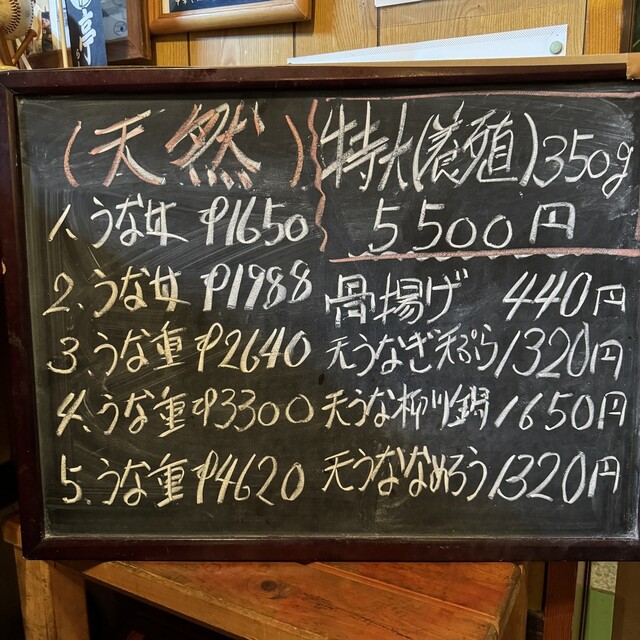 亭
(天然)
1. うな丼 P1650
2. うな丼 P1988
3. うな重 P2640
4. うな重 P3300
5. うな重 P4620
特大(養殖)350g
5500円
骨揚げ 440円
天うなぎ天ぷら 1320円
天うな柳川鍋 1650円
天うななめろう 1320円